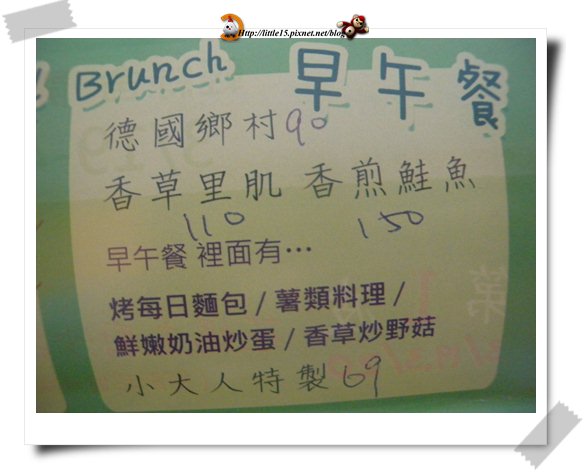 Http://little15.pixnet.net/blog
Brunch 早午餐
德國鄉村90
香草里肌 香煎鮭魚
110 150
早午餐 裡面有…
烤每日麵包 / 薯類料理 /
鮮嫩奶油炒蛋 / 香草炒野菇
小大人特製69
第